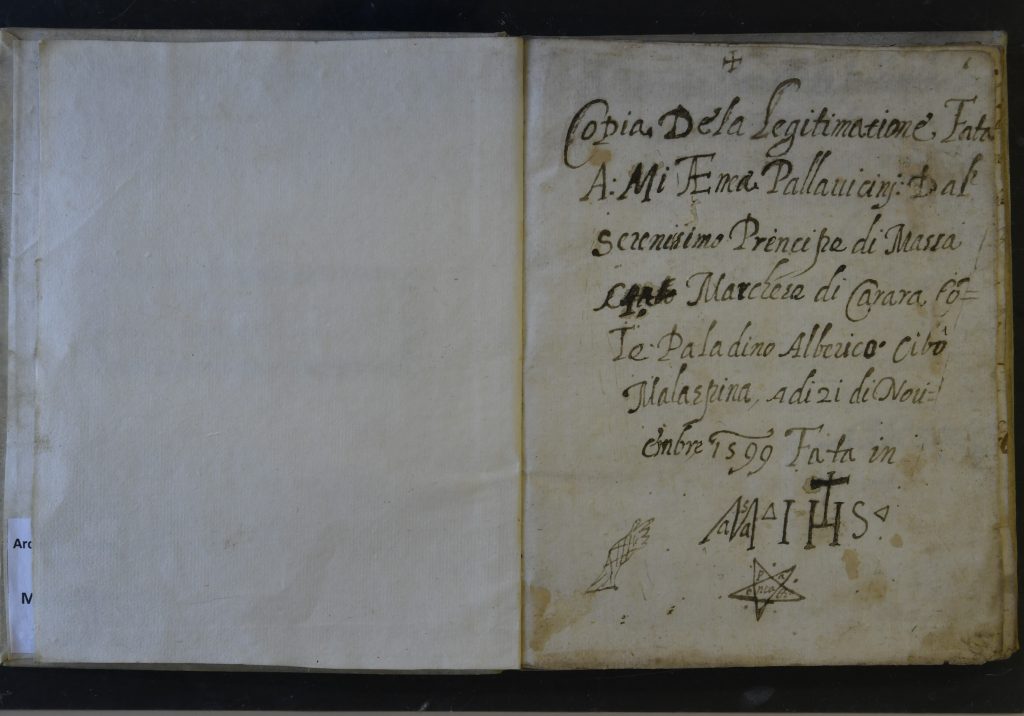 Copia Dela Legitimatione Fata
A: Mi Æmea Pallauicinj: Dal
Serenissimo Principe di Massa
Marchese di Carara Cõ=
Te Paladino Alberico Cibò
Malaspina, Adi 21 di Nou=
embre 1599 Fata in
IHS
Arc
M